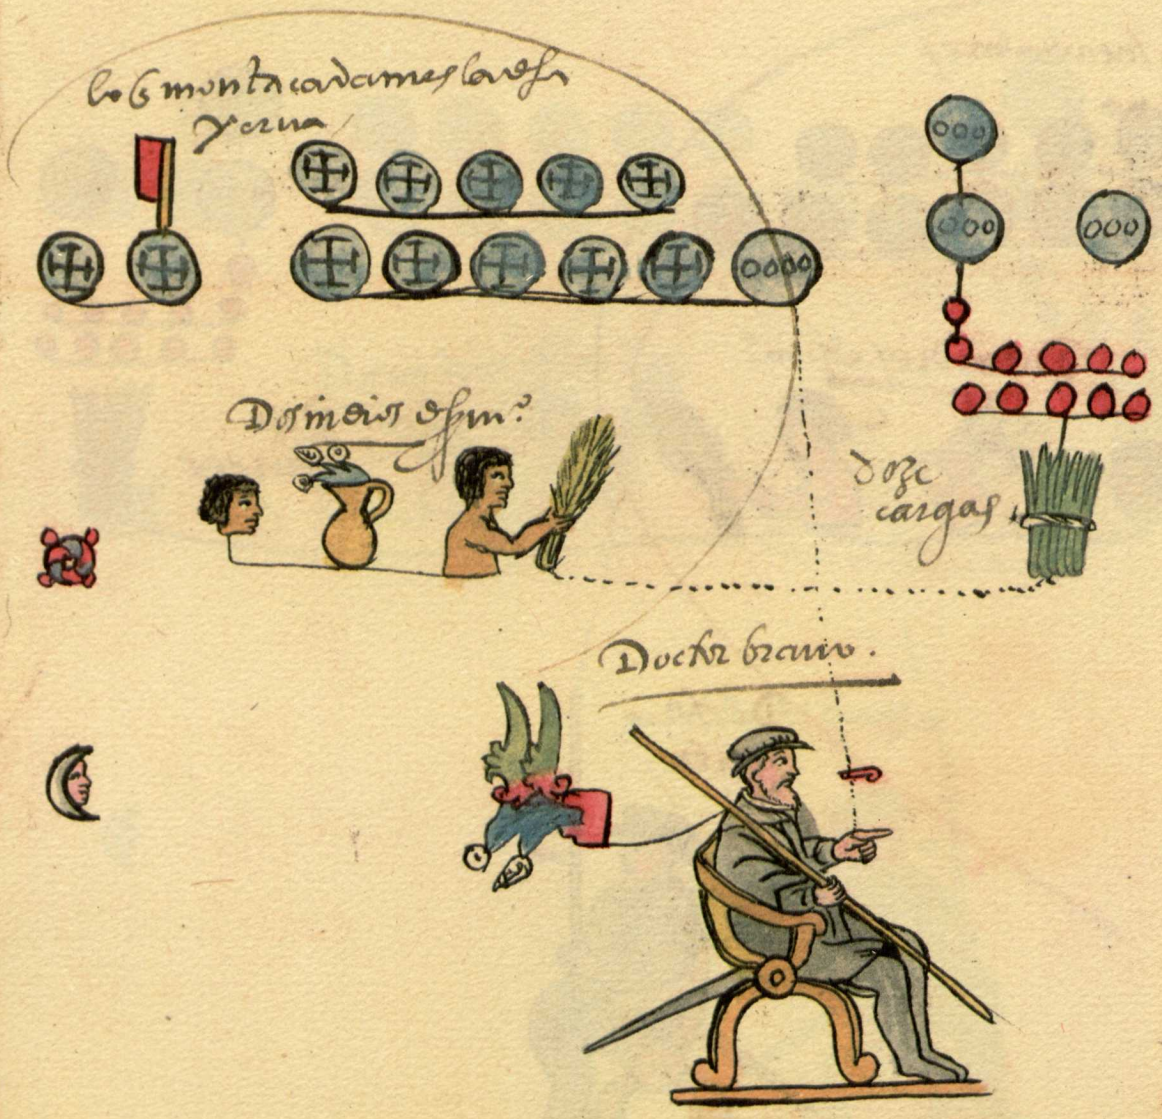 lo q monta cada mes la dha
yerua
Dos indios
doze
cargas
Doctor brauo.